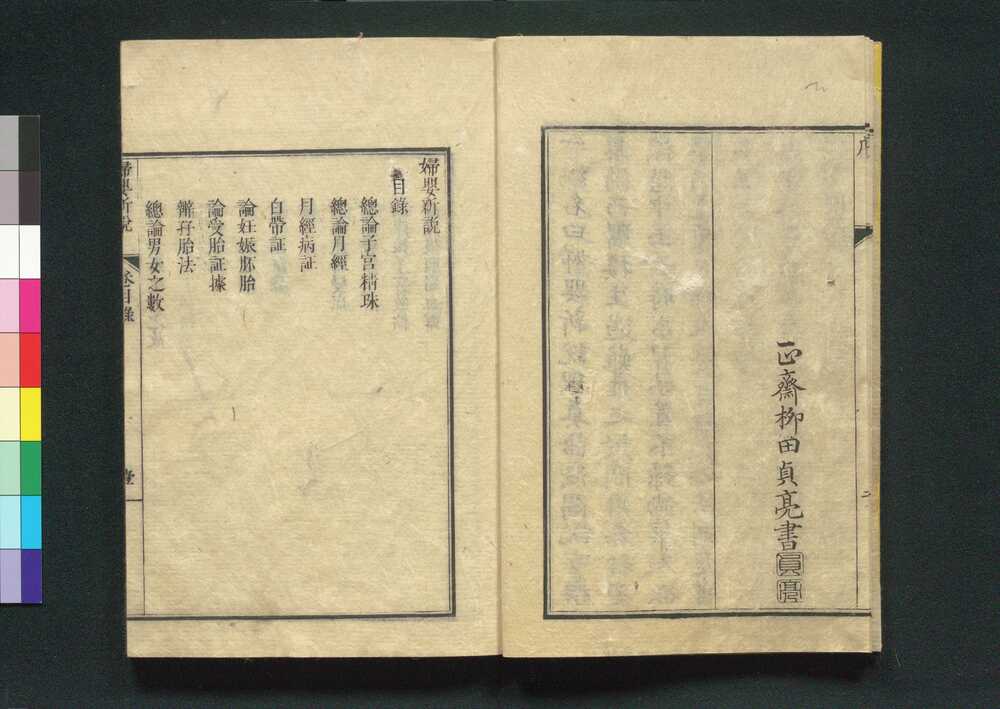 序
二
正齋柳田貞亮書
貞
亮
婦嬰新説
目錄
總論子宮精珠
總論月經
月經病証
白帶証
論妊娠胚胎
論受胎証據
辨孖胎法
總論男女之數
婦嬰新說
目錄
壹